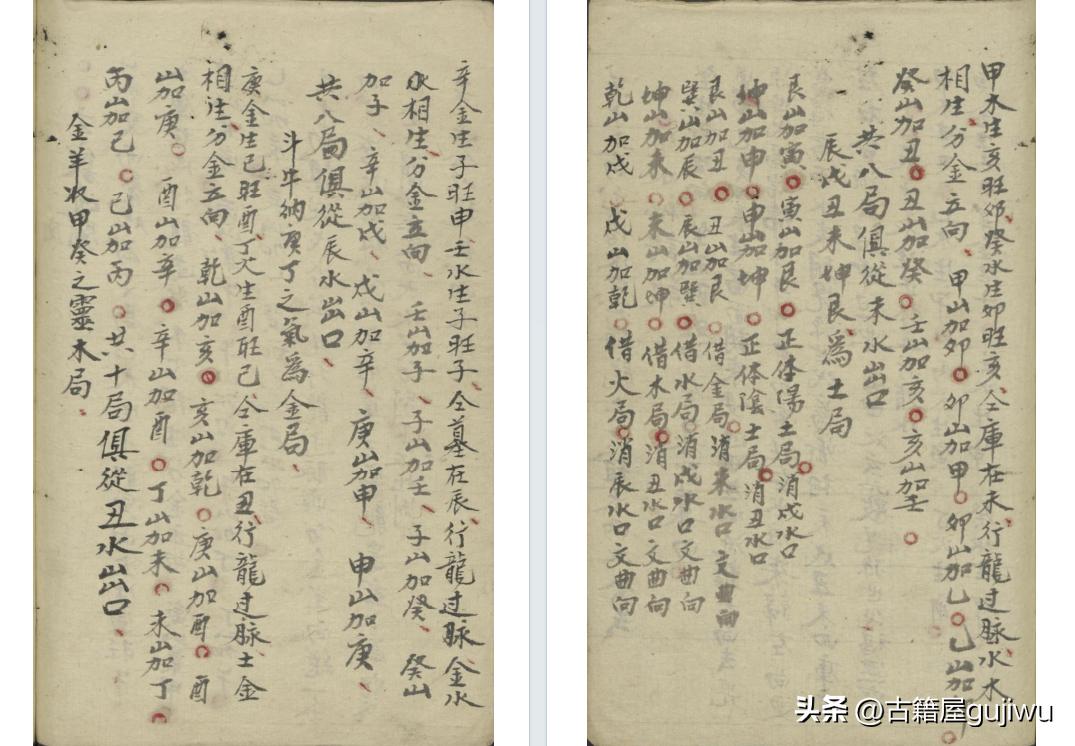 甲木生亥旺卯癸水生卯旺亥仝庫在未行龍过脉水木
相生分金立向 甲山加卯 卯山加甲 卯山加乙 乙山加卯
癸山加丑 丑山加癸 壬山加亥 亥山加壬
共八局俱從未水出口
辰戌丑未坤艮為土局
艮山加寅 寅山加艮 正体陽土局消戌水口
坤山加申 申山加坤 正体陰土局消丑水口
艮山加丑 丑山加艮 借金局消未水口文曲向
巽山加辰 辰山加巽 借水局消戌水口文曲向
坤山加未 未山加坤 借木局消丑水口文曲向
乾山加戌 戌山加乾 借火局消辰水口文曲向
辛金生子旺申壬水生子旺子仝墓在辰行龍过脉金水
水相生分金立向 壬山加子 子山加壬 子山加癸 癸山
加子 辛山加戌 戌山加辛 庚山加申 申山加庚
共八局俱從辰水出口
斗牛納庚丁之氣為金局
庚金生巳旺酉丁火生酉旺巳仝庫在丑行龍过脉土金
相生分金立向 乾山加亥 亥山加乾 庚山加酉 酉
山加庚 酉山加辛 辛山加酉 丁山加未 未山加丁
丙山加巳 巳山加丙 共十局俱從丑水出口
金羊收甲癸之靈木局
头条 @古籍屋gujiwu